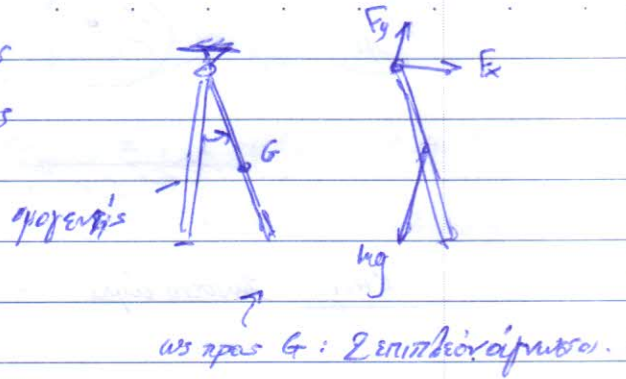 Fy
Fx
G
ομογενής
mg
ως προς G: 2 επιπλέον άγνωστοι.